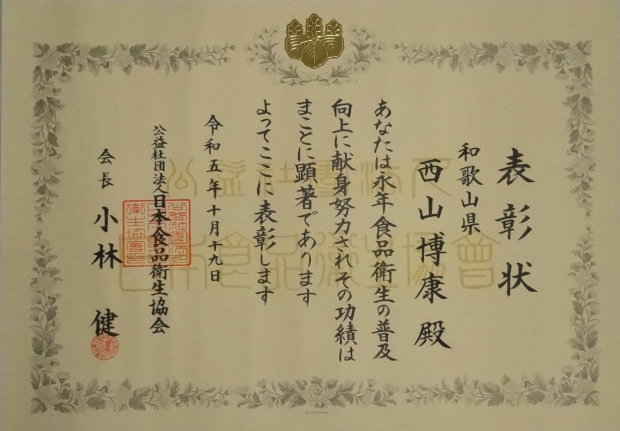 表彰状
和歌山県
西山博康殿
あなたは永年食品衛生の普及
向上に献身努力されその功績は
まことに顕著であります
よってここに表彰します
令和五年十月十九日
公益社団法人日本食品衛生協会
会長 小林 健